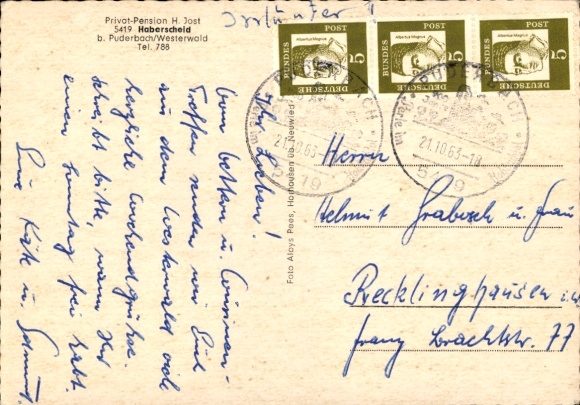 Privat-Pension H. Jost
5419 Haberscheid
b. Puderbach/Westerwald
Tel. 788
DEUTSCHE BUNDESPOST
Albertus Magnus
5
DEUTSCHE BUNDESPOST
Albertus Magnus
5
DEUTSCHE BUNDESPOST
Albertus Magnus
5
PUDERBACH
21.10.63-18
5419
PUDERBACH
21.10.63-18
5419
Ihr Lieben!
Vom
Treffen senden wir Euch
aus dem Westerwald viele
herzliche
schreibt bitte, wann Ihr
einen Sonntag frei habt.
Eure Käte u.
Foto Aloys Pees, Horhausen üb. Neuwied
Herrn
Helmut Grabosch u. Frau
Recklinghausen i.W.
Franz Brachtstr. 77